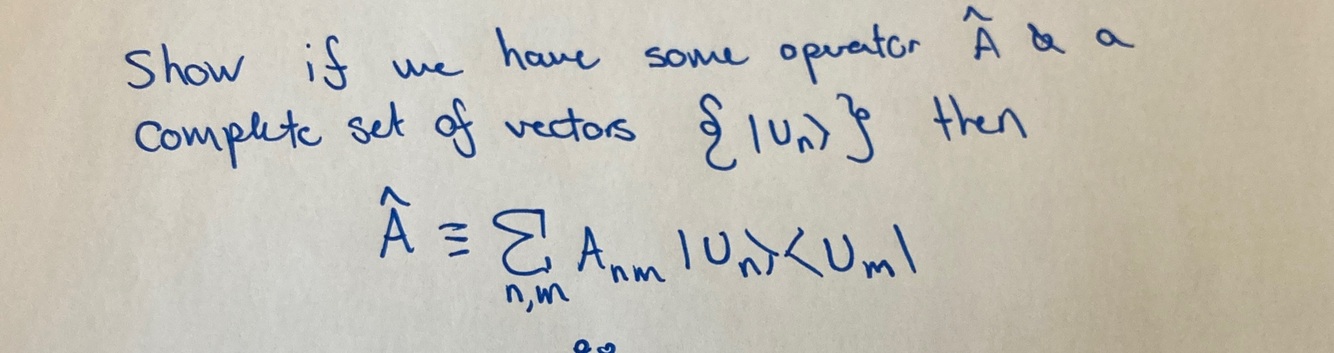 Show if we have some operator Â & a
complete set of vectors {|Uₙ⟩} then
Â ≡ Σ Aₙₘ |Uₙ⟩⟨Uₘ|
n,m